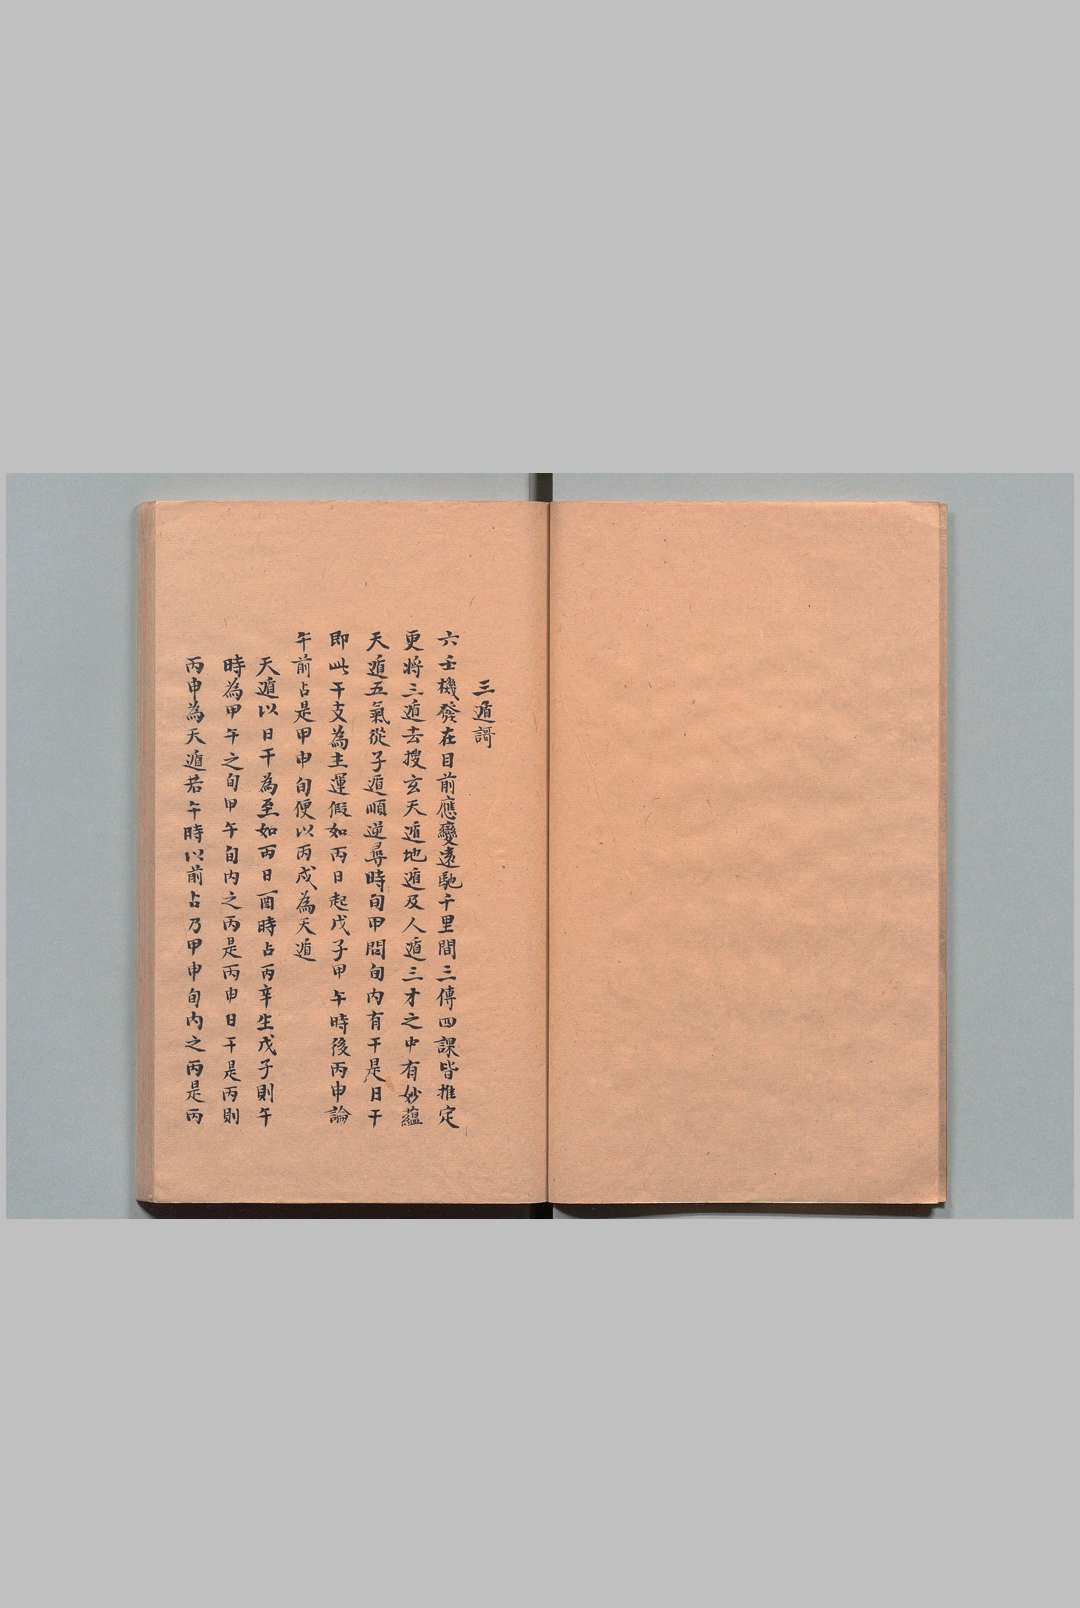 三遁謌
六壬機發在目前應變遠馳千里間三傳四課皆推定
更將三遁去搜玄天遁地遁及人遁三才之中有妙蘊
天遁五氣從子遁順逆尋時旬甲問旬內有干是日干
即此干支為主運假如丙日起戊子甲午時後丙申論
午前占是甲申旬便以丙戌為天遁
天遁以日干為至如丙日酉時占丙辛生戊子則午
時為甲午之旬甲午旬內之丙是丙申日干是丙則
丙申為天遁若午時以前占乃甲申旬內之丙是丙